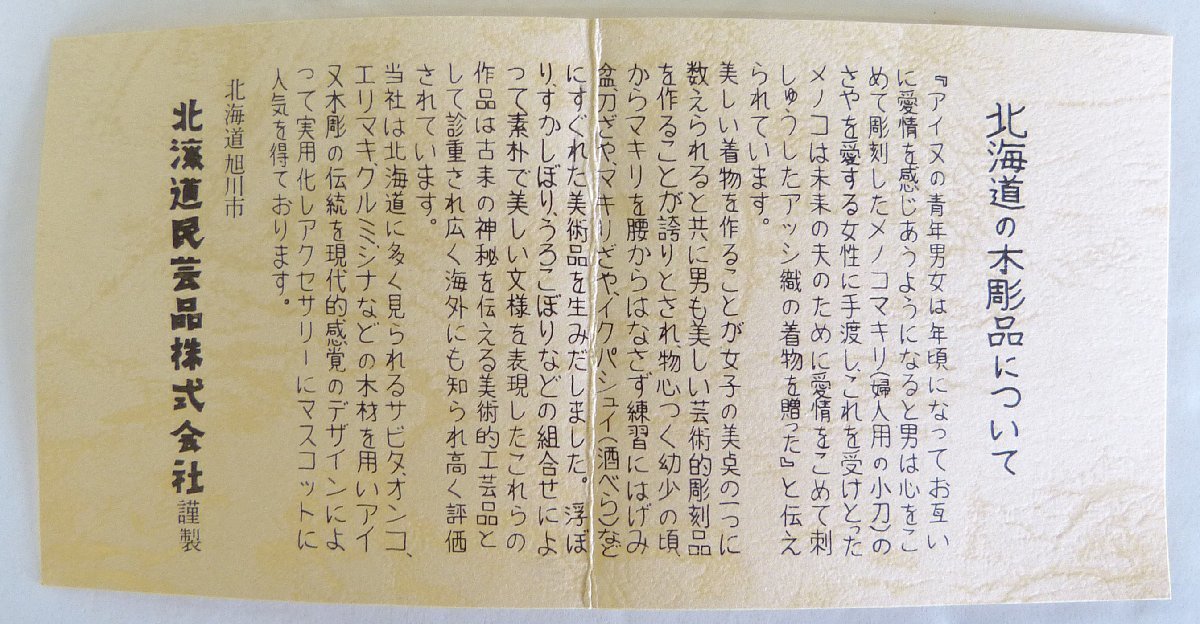 北海道の木彫品について
『アイヌの青年男女は年頃になってお互い
に愛情を感じあうようになると男は心をこ
めて彫刻したメノコマキリ(婦人用の小刀)の
さやを愛する女性に手渡し、これを受けとった
メノコは未来の夫のために愛情をこめて刺
しゅうしたアッシ織の着物を贈った』と伝え
られています。
美しい着物を作ることが女子の美点の一つに
数えられると共に男も美しい芸術的彫刻品
を作ることが誇りとされ物心つく幼少の頃
からマキリを腰からはなさず練習にはげみ
盆、刀ざや、マキリざや、イクパシュイ(酒べら)など
にすぐれた美術品を生みだしました。 浮ぼ
り、すかしぼり、うろこぼりなどの組合せによ
って素朴で美しい文様を表現したこれらの
作品は古来の神秘を伝える美術的工芸品と
して診重され広く海外にも知られ高く評価
されています。
当社は北海道に多く見られるサビタ、オンコ、
エリマキ、グルミ、シナなどの木材を用いアイ
ヌ木彫の伝統を現代的感覚のデザインによ
って実用化しアクセサリーにマスコットに
人気を得ております。
北海道旭川市
北海道民芸品株式会社謹製